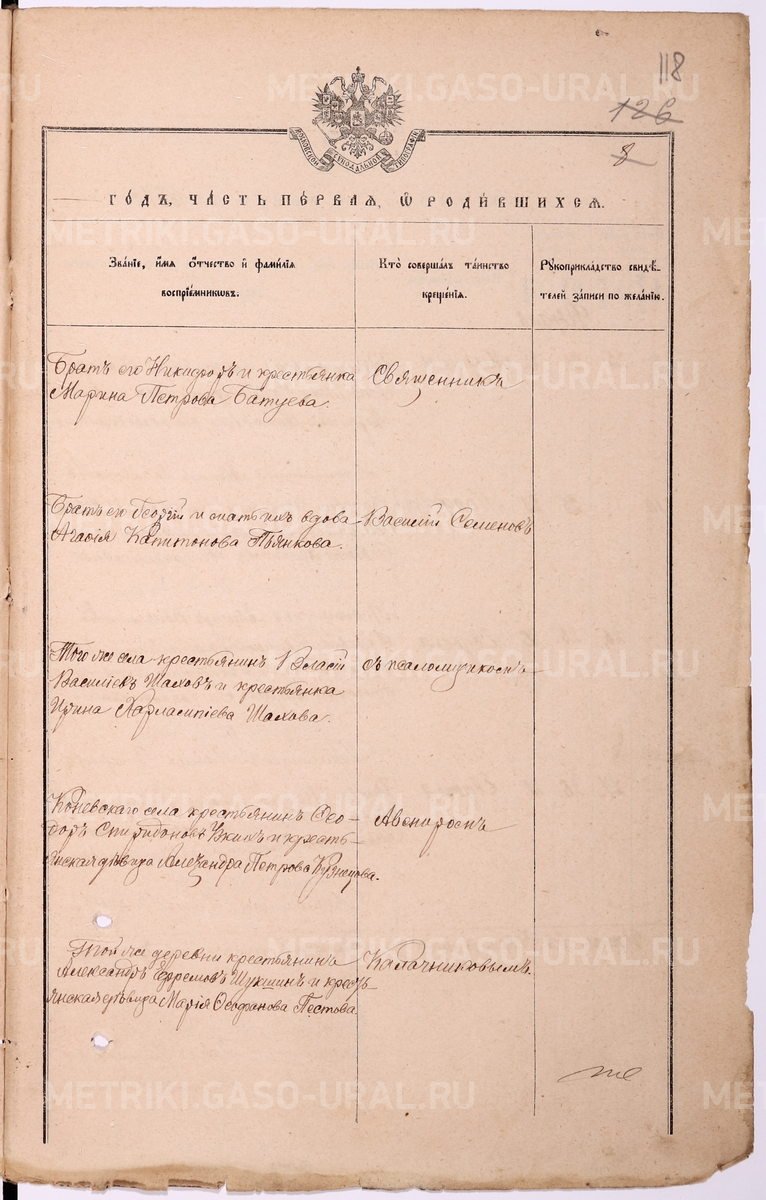 118
126
8
МОСКОВСКОЙ СѴНОДАЛЬНОЙ ТИПОГРАФІИ
ГО́ДЪ, ЧА́СТЬ ПЕ́РВАѦ, Ѡ҆ РОДИ́ВШИХСѦ.
Зва́нїе, и҆́мѧ ѻ҆́тчество и҆ фами́лїѧ
воспрїе́мникѡвъ.
Кто̀ соверша́лъ та́инство
креще́нїѧ.
Рꙋкоприкла́дство свидѣ́-
телей за́писи по жела́нїю.
Братъ его Никифоръ и крестьянка
Марина Петрова Батуева.
Священникъ
Братъ его Георгій и вдова
Агафія Капитонова Пьянкова.
Василій Семеновъ
Того же села крестьянинъ Власій
Василіевъ Шаховъ и крестьянка
Ирина Харлампіева Шахова.
съ псаломщикомъ
Коневскаго села крестьянинъ Ѳео-
доръ Спиридоновъ и кресть-
янская дѣвица Александра Петрова Кузнецова.
Авениромъ
Той же деревни крестьянинъ
Александръ Ефремовъ Шукшинъ и кресть-
янская дѣвица Марія Ѳеофанова Пестова
Калачниковымъ.
METRIKI.GASO-URAL.RU